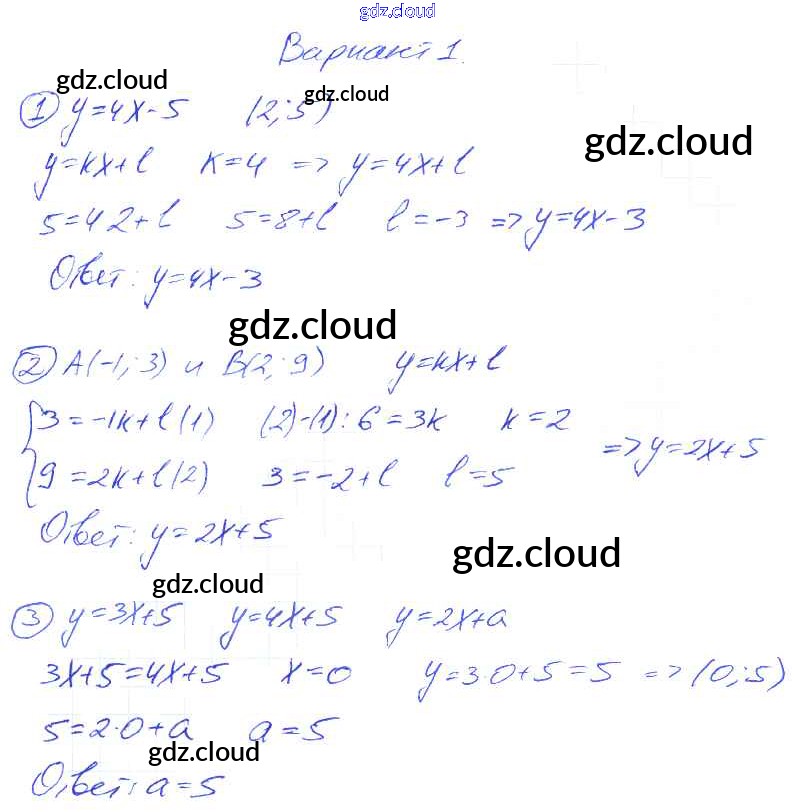 gdz.cloud
Вариант 1.
gdz.cloud gdz.cloud
① y=4x-5 (2;5)
gdz.cloud
y=kx+l k=4 => y=4x+l
5=4·2+l 5=8+l l=-3 => y=4x-3
Ответ: y=4x-3
gdz.cloud
② A(-1;3) и B(2;9) y=kx+l
{3=-1k+l (1) (2)-(1): 6=3k k=2
=> y=2x+5
{9=2k+l (2) 3=-2+l l=5
Ответ: y=2x+5
gdz.cloud
gdz.cloud
③ y=3x+5 y=4x+5 y=2x+a
3x+5=4x+5 x=0 y=3·0+5=5 => (0;5)
5=2·0+a a=5
gdz.cloud
Ответ: a=5